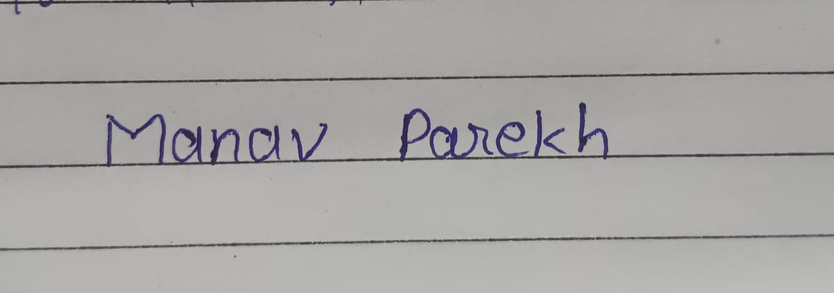 Manav Parekh